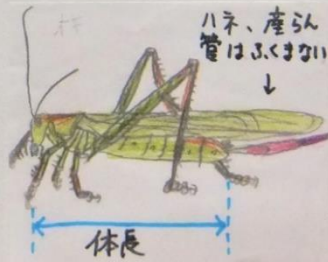 ハネ、産らん
管はふくまない
体長